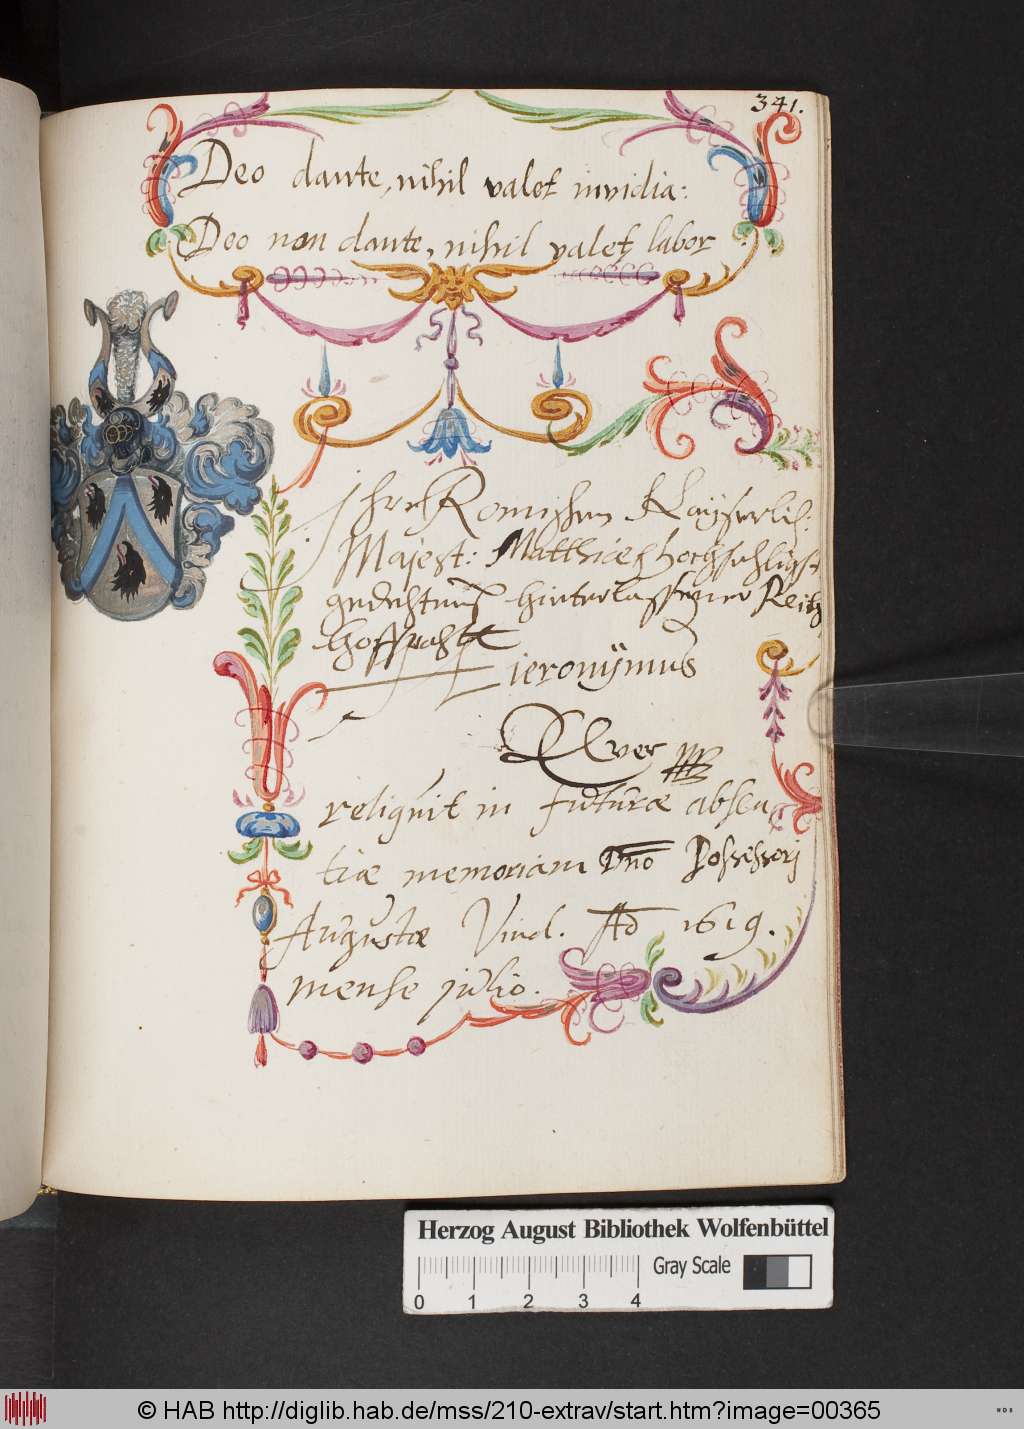 341.
Deo dante, nihil valet invidia:
Deo non dante, nihil valet labor
Ihrer Romischen Kayserlich:
Majest: Matthiae hochsehligst
gedechtnuß hinterlassener Reichs
hoffraht
Hieronymus
Elver
reliquit in futurae absen
tiae memoriam Dno Possessori
Augustae Vind. Ao 1619.
mense julio.
Herzog August Bibliothek Wolfenbüttel
Gray Scale
0 1 2 3 4
© HAB http://diglib.hab.de/mss/210-extrav/start.htm?image=00365